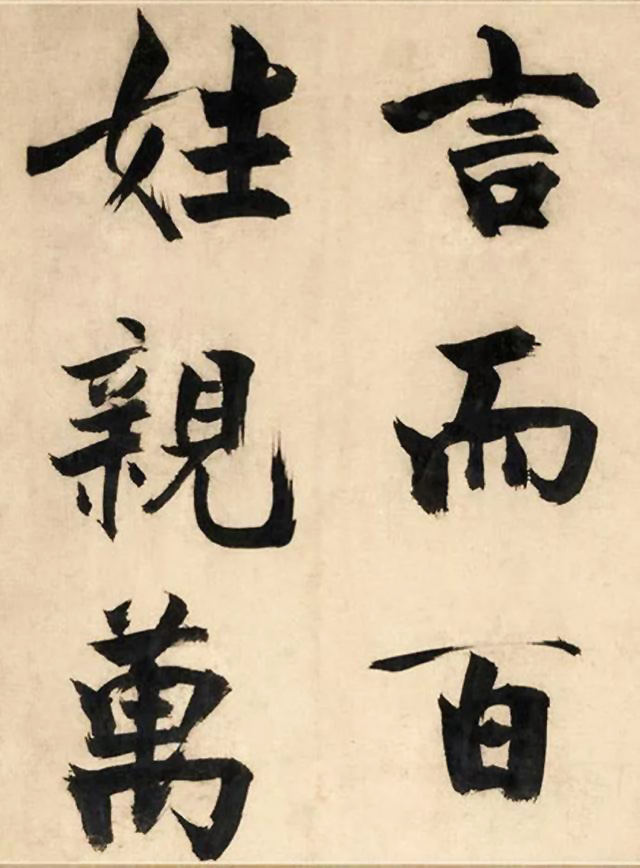 言而百
姓親萬